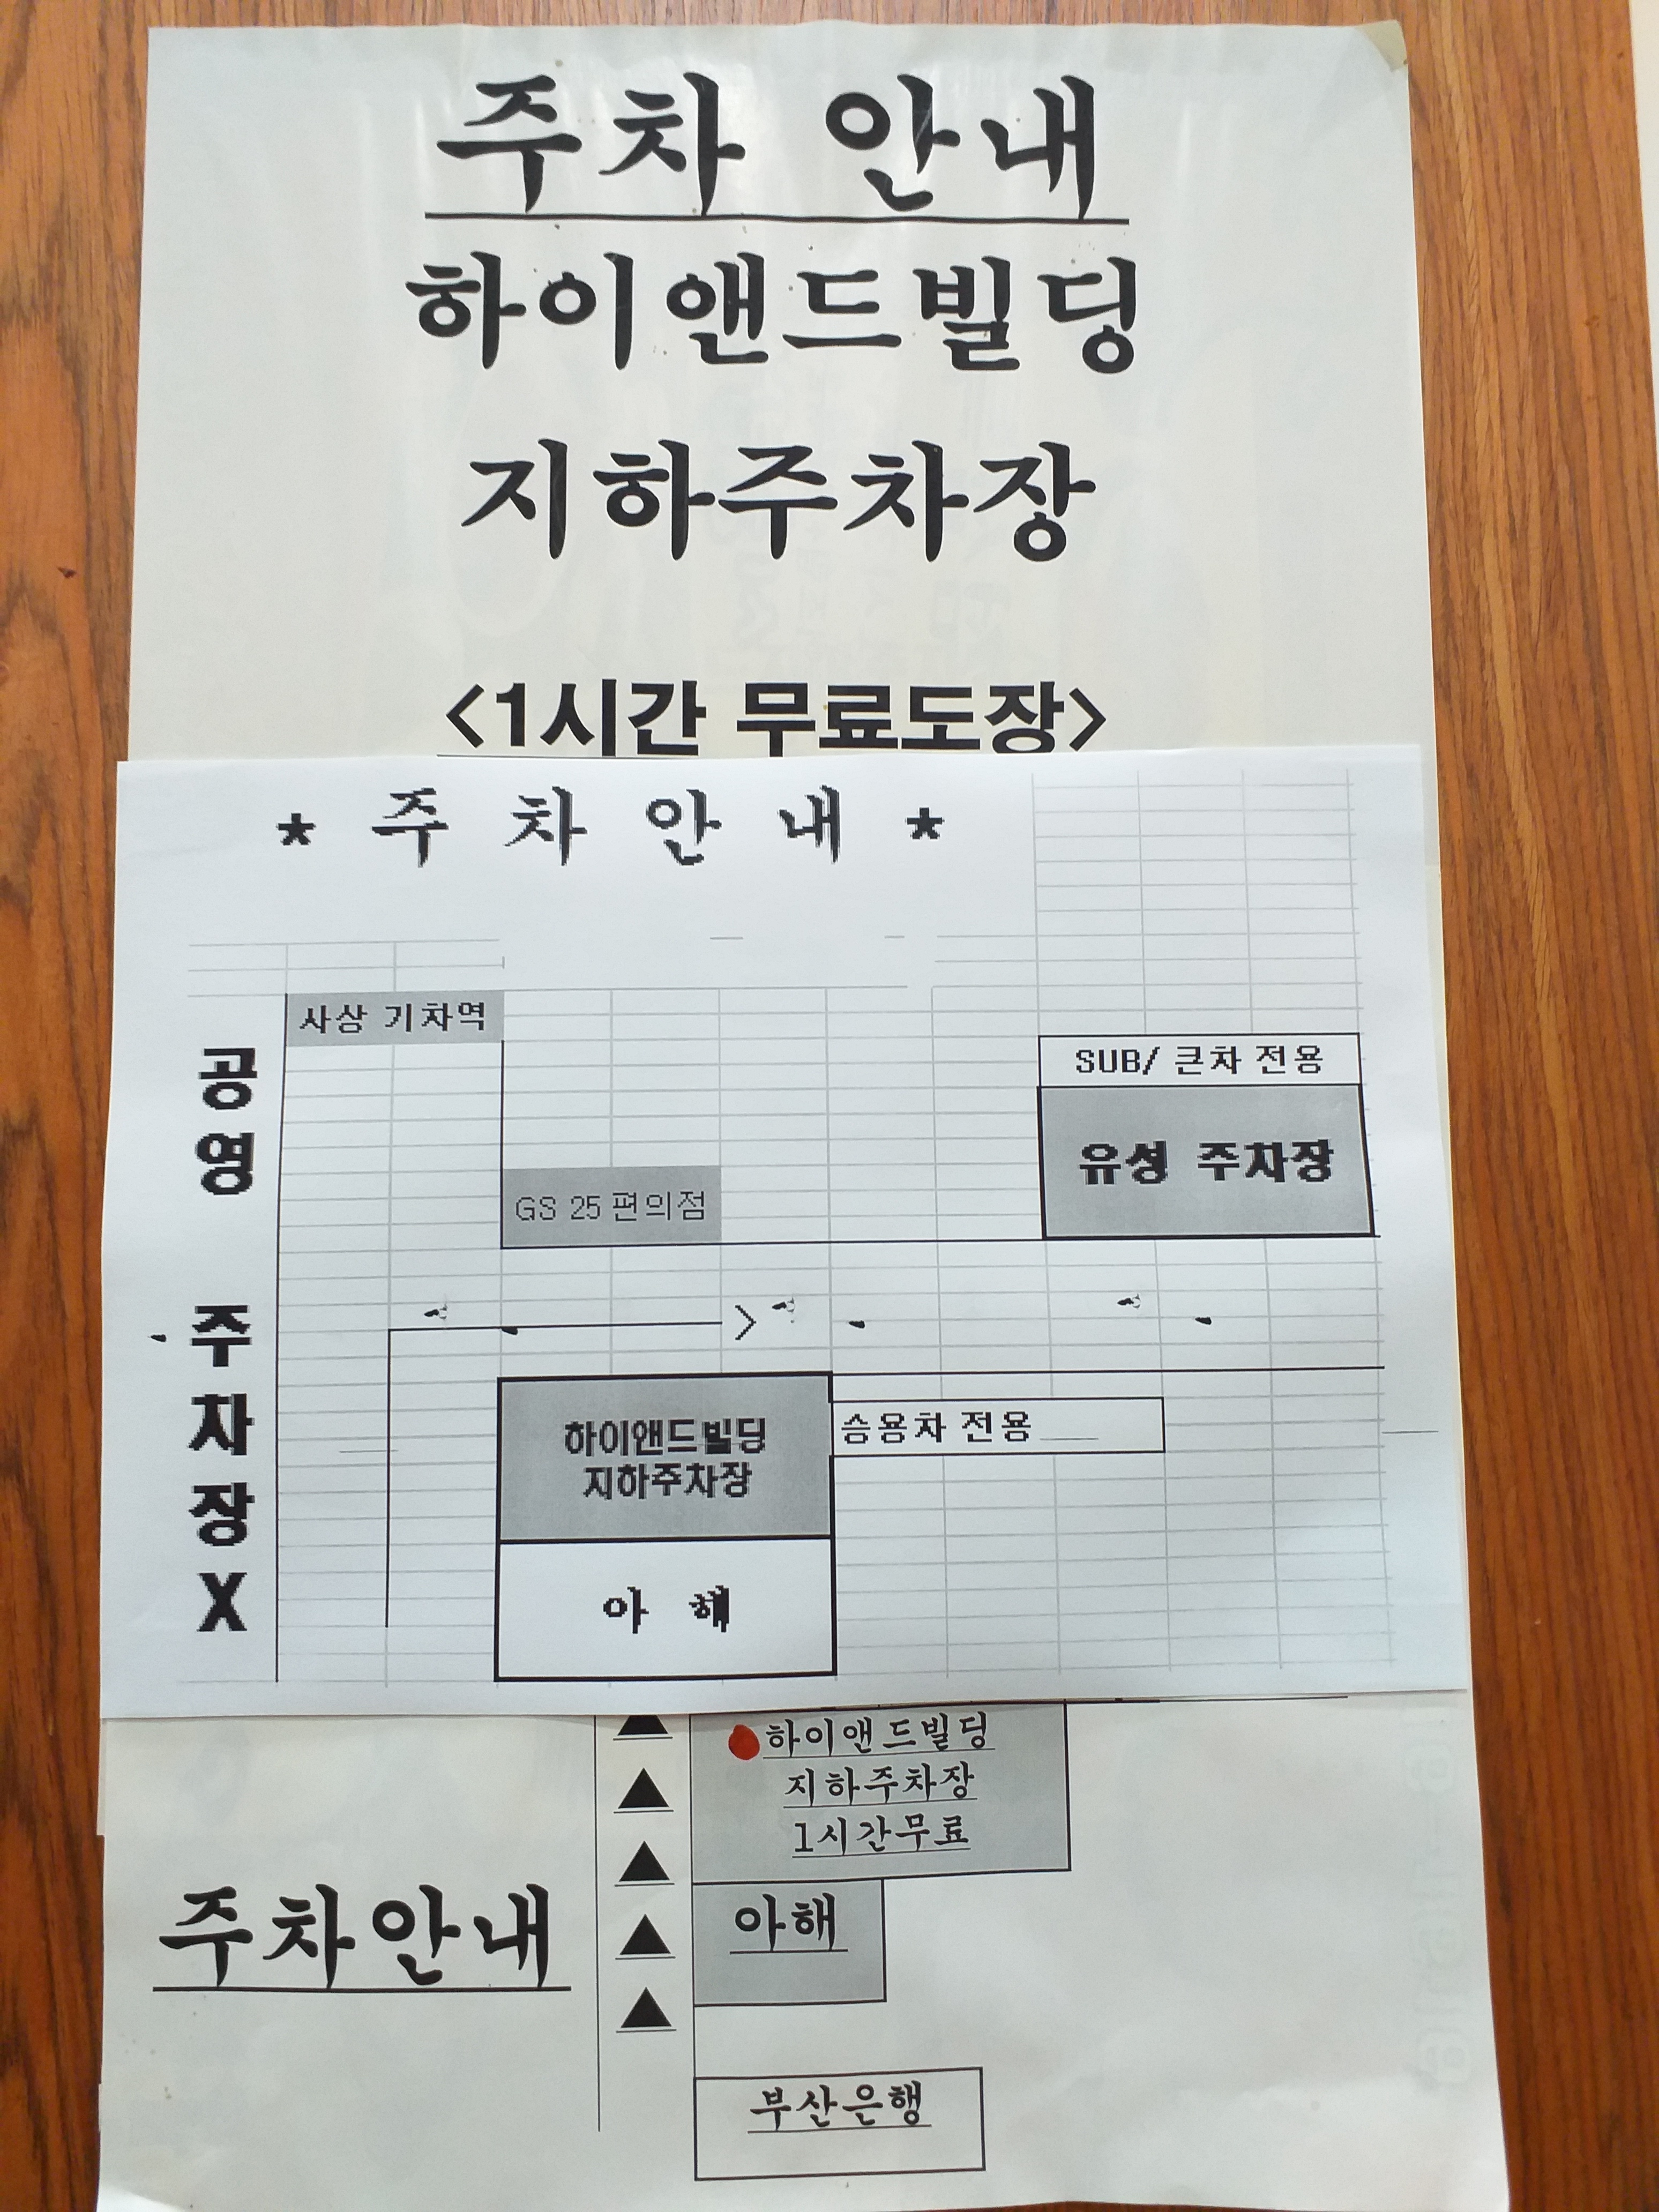 주차 안내
하이앤드빌딩
지하주차장
<1시간 무료도장>
* 주 차 안 내 *
사상 기차역
공영 주차장X
SUB/ 큰차 전용
유성 주차장
GS 25 편의점
>
하이앤드빌딩
지하주차장
승용차 전용
아 해
하이앤드빌딩
지하주차장
1시간무료
주차안내
아해
부산은행